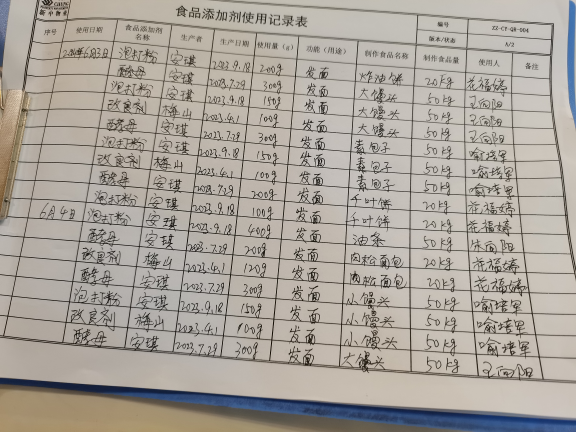 新中物业
食品添加剂使用记录表
编号 XZ-CY-QR-004
版本/状态 A/2
序号 使用日期 食品添加剂名称 生产者 生产日期 使用量（g） 功能（用途） 制作食品名称 制作食品量 使用人 备注
泡打粉 安琪 2023.9.18 200g 发面 炸油饼 20kg 花福婷
酵母 安琪 2023.7.29 300g 发面 大馒头 50kg 王向阳
泡打粉 安琪 2023.9.18 150g 发面 大馒头 50kg 王向阳
改良剂 梅山 2023.4.1 100g 发面 大馒头 50kg 王向阳
酵母 安琪 2023.7.29 300g 发面 素包子 50kg 喻培军
泡打粉 安琪 2023.9.18 150g 发面 素包子 50kg 喻培军
改良剂 梅山 2023.4.1 100g 发面 素包子 50kg 喻培军
酵母 安琪 2023.7.29 200g 发面 千叶饼 20kg 花福婷
泡打粉 安琪 2023.9.18 100g 发面 千叶饼 20kg 花福婷
6月4日 泡打粉 安琪 2023.9.18 400g 发面 油条 50kg 向阳
酵母 安琪 2023.7.29 200g 发面 肉松面包 20kg 花福婷
改良剂 梅山 2023.4.1 120g 发面 肉松面包 20kg 花福婷
酵母 安琪 2023.7.29 300g 发面 小馒头 50kg 喻培军
泡打粉 安琪 2023.9.18 150g 发面 小馒头 50kg 喻培军
改良剂 梅山 2023.4.1 100g 发面 小馒头 50kg 喻培军
酵母 安琪 2023.7.29 300g 发面 大馒头 50kg 王向阳